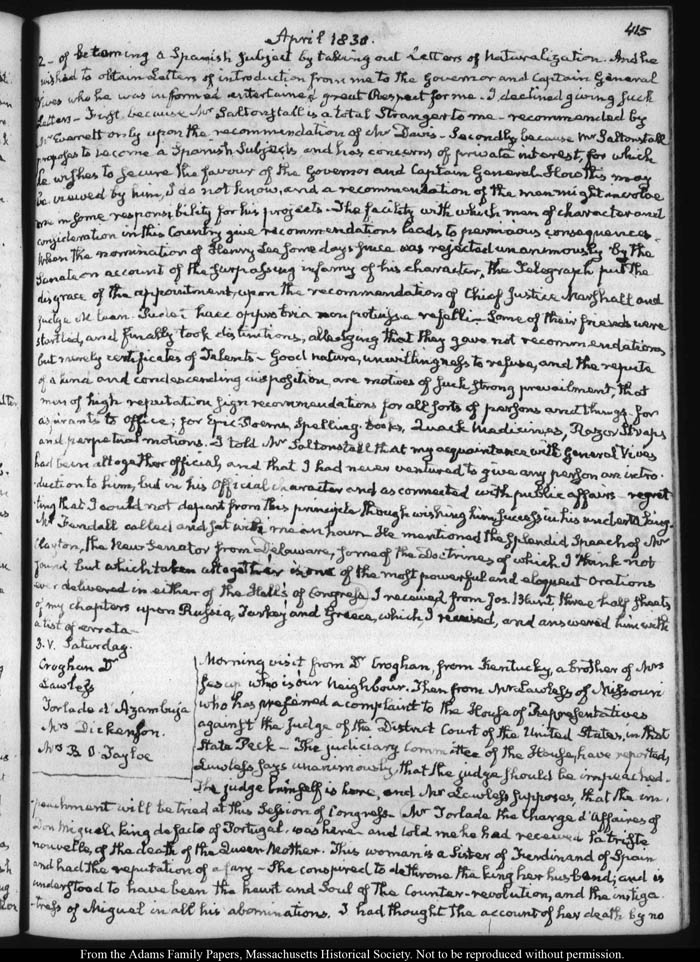 415
April 1830.
2 - of becoming a Spanish Subject by taking out Letters of Naturalization. And he
wished to obtain Letters of introduction from me to the Governor and Captain General
Vives who he was informed entertained great Respect for me. I declined giving such
Letters - First, because Mr Saltonstall is a total Stranger to me - recommended by
Mr Everett only upon the recommendation of Mr Davis - Secondly because Mr Saltonstall
proposes to become a Spanish Subject and has concerns of private interest, for which
he wishes to secure the favour of the Governor and Captain General. How this may
be viewed by him, I do not know, and a recommendation of the man might involve
me in some responsibility for his projects. The facility with which men of character and
consideration in this Country give recommendations leads to pernicious consequences.
When the nomination of Henry Lee some days since was rejected unanimously by the
Senate on account of the surpassing infamy of his character, the Telegraph put the
disgrace of the appointment, upon the recommendation of Chief Justice Marshall and
Judge McLean. Pudet haec opprobria non potuisse refelli - Some of their friends were
startled, and finally took distinctions, alledging that they gave not recommendations
but merely certificates of Talents - Good nature, unwillingness to refuse, and the repute
of a kind and condescending disposition, are motives of such strong prevailment, that
men of high reputation sign recommendations for all sorts of persons and things. for
aspirants to office; for Epic Poems, Spelling-books, Quack Medicines, Razor Straps
and perpetual motions. I told Mr Saltonstall that my acquaintance with General Vives
had been altogether official, and that I had never ventured to give any person an intro-
duction to him, but in his Official character and as connected with public affairs - regret
-ting that I could not depart from this principle though wishing him success in his undertaking.
Mr Kendall called and sat with me an hour. He mentioned the splendid Speech of Mr
Clayton, the New Senator from Delaware, some of the Doctrines of which I think not
sound but which taken altogether is one of the most powerful and eloquent Orations
ever delivered in either of the Halls of Congress. I received from Jos. Blunt, three half sheets
of my chapters upon Russia, Turkey and Greece, which I revised, and answered him with
a list of errata -
3. V. Saturday.
Croghan Dr
Lawless
Torlade d'Azambuja
Mrs Dickenson.
Mrs B. O. Tayloe
Morning visit from Dr Croghan, from Kentucky, a brother of Mrs
Jesup who is our Neighbour. Then from Mr Lawless of Missouri
who has preferred a complaint to the House of Representatives
against the Judge of the District Court of the United States, in that
State Peck - The judiciary committee of the House, have reported,
Lawless says unanimously, that the judge should be impeached -
The judge himself is here, and Mr Lawless supposes, that the im-
-peachment will be tried at this Session of Congress. Mr Torlade the Chargé d'Affaires of
Don Miguel, king de facto of Portugal, was here - and told me he had received la triste
nouvelle, of the death of the Queen Mother. This woman is a Sister of Ferdinand of Spain
and had the reputation of a fury - She conspired to dethrone the king her husband; and is
understood to have been the heart and Soul of the Counter-revolution, and the instiga-
-tress of Miguel in all his abominations. I had thought the account of her death by no
From the Adams Family Papers, Massachusetts Historical Society. Not to be reproduced without permission.